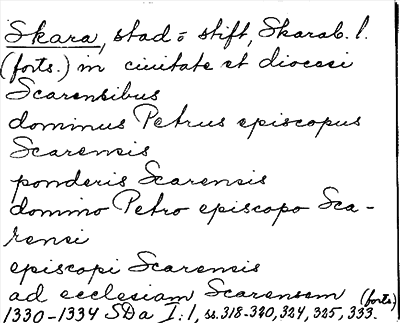 Skara, stad = stift, Skarab. l.
(forts.) in civitate et diocesi
Scarensibus
dominus Petrus episcopus
Scarensis
ponderis Scarensis
domino Petro episcopo Sca-
rensi
episcopi Scarensis
ad ecclesiam Scarensem (forts)
1330-1334 SDa I:1, ss. 318-320, 324, 325, 333.